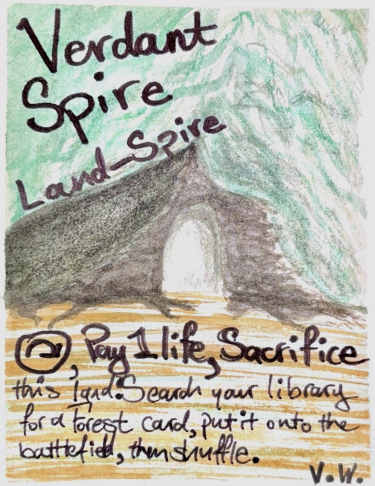 Verdant
Spire
Land-Spire
, Pay 1 life, Sacrifice
this land: Search your library
for a Forest card, put it onto the
battlefield, then shuffle.
V.W.